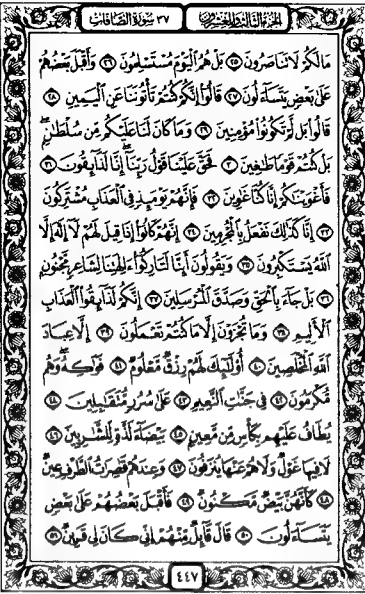 الجزء الثالث والعشرون ٣٧ سورة الصافات
مَا لَكُمْ لَا تَنَاصَرُونَ ٢٥ بَلْ هُمُ ٱلْيَوْمَ مُسْتَسْلِمُونَ ٢٦ وَأَقْبَلَ بَعْضُهُمْ
عَلَىٰ بَعْضٍ يَتَسَآءَلُونَ ٢٧ قَالُوٓا۟ إِنَّكُمْ كُنتُمْ تَأْتُونَنَا عَنِ ٱلْيَمِينِ ٢٨
قَالُوا۟ بَل لَّمْ تَكُونُوا۟ مُؤْمِنِينَ ٢٩ وَمَا كَانَ لَنَا عَلَيْكُم مِّن سُلْطَـٰنٍۭ ۖ
بَلْ كُنتُمْ قَوْمًا طَـٰغِينَ ٣٠ فَحَقَّ عَلَيْنَا قَوْلُ رَبِّنَآ ۖ إِنَّا لَذَآئِقُونَ ٣١
فَأَغْوَيْنَـٰكُمْ إِنَّا كُنَّا غَـٰوِينَ ٣٢ فَإِنَّهُمْ يَوْمَئِذٍ فِى ٱلْعَذَابِ مُشْتَرِكُونَ
٣٣ إِنَّا كَذَٰلِكَ نَفْعَلُ بِٱلْمُجْرِمِينَ ٣٤ إِنَّهُمْ كَانُوٓا۟ إِذَا قِيلَ لَهُمْ لَآ إِلَـٰهَ إِلَّا
ٱللَّهُ يَسْتَكْبِرُونَ ٣٥ وَيَقُولُونَ أَئِنَّا لَتَارِكُوٓا۟ ءَالِهَتِنَا لِشَاعِرٍ مَّجْنُونٍۭ
٣٦ بَلْ جَآءَ بِٱلْحَقِّ وَصَدَّقَ ٱلْمُرْسَلِينَ ٣٧ إِنَّكُمْ لَذَآئِقُوا۟ ٱلْعَذَابِ
ٱلْأَلِيمِ ٣٨ وَمَا تُجْزَوْنَ إِلَّا مَا كُنتُمْ تَعْمَلُونَ ٣٩ إِلَّا عِبَادَ
ٱللَّهِ ٱلْمُخْلَصِينَ ٤٠ أُو۟لَـٰٓئِكَ لَهُمْ رِزْقٌ مَّعْلُومٌ ٤١ فَوَٰكِهُ ۖ وَهُم
مُّكْرَمُونَ ٤٢ فِى جَنَّـٰتِ ٱلنَّعِيمِ ٤٣ عَلَىٰ سُرُرٍ مُّتَقَـٰبِلِينَ ٤٤
يُطَافُ عَلَيْهِم بِكَأْسٍ مِّن مَّعِينٍۭ ٤٥ بَيْضَآءَ لَذَّةٍ لِّلشَّـٰرِبِينَ ٤٦
لَا فِيهَا غَوْلٌ وَلَا هُمْ عَنْهَا يُنزَفُونَ ٤٧ وَعِندَهُمْ قَـٰصِرَٰتُ ٱلطَّرْفِ عِينٌ
٤٨ كَأَنَّهُنَّ بَيْضٌ مَّكْنُونٌ ٤٩ فَأَقْبَلَ بَعْضُهُمْ عَلَىٰ بَعْضٍ
يَتَسَآءَلُونَ ٥٠ قَالَ قَآئِلٌ مِّنْهُمْ إِنِّى كَانَ لِى قَرِينٌ ٥١
٤٤٧